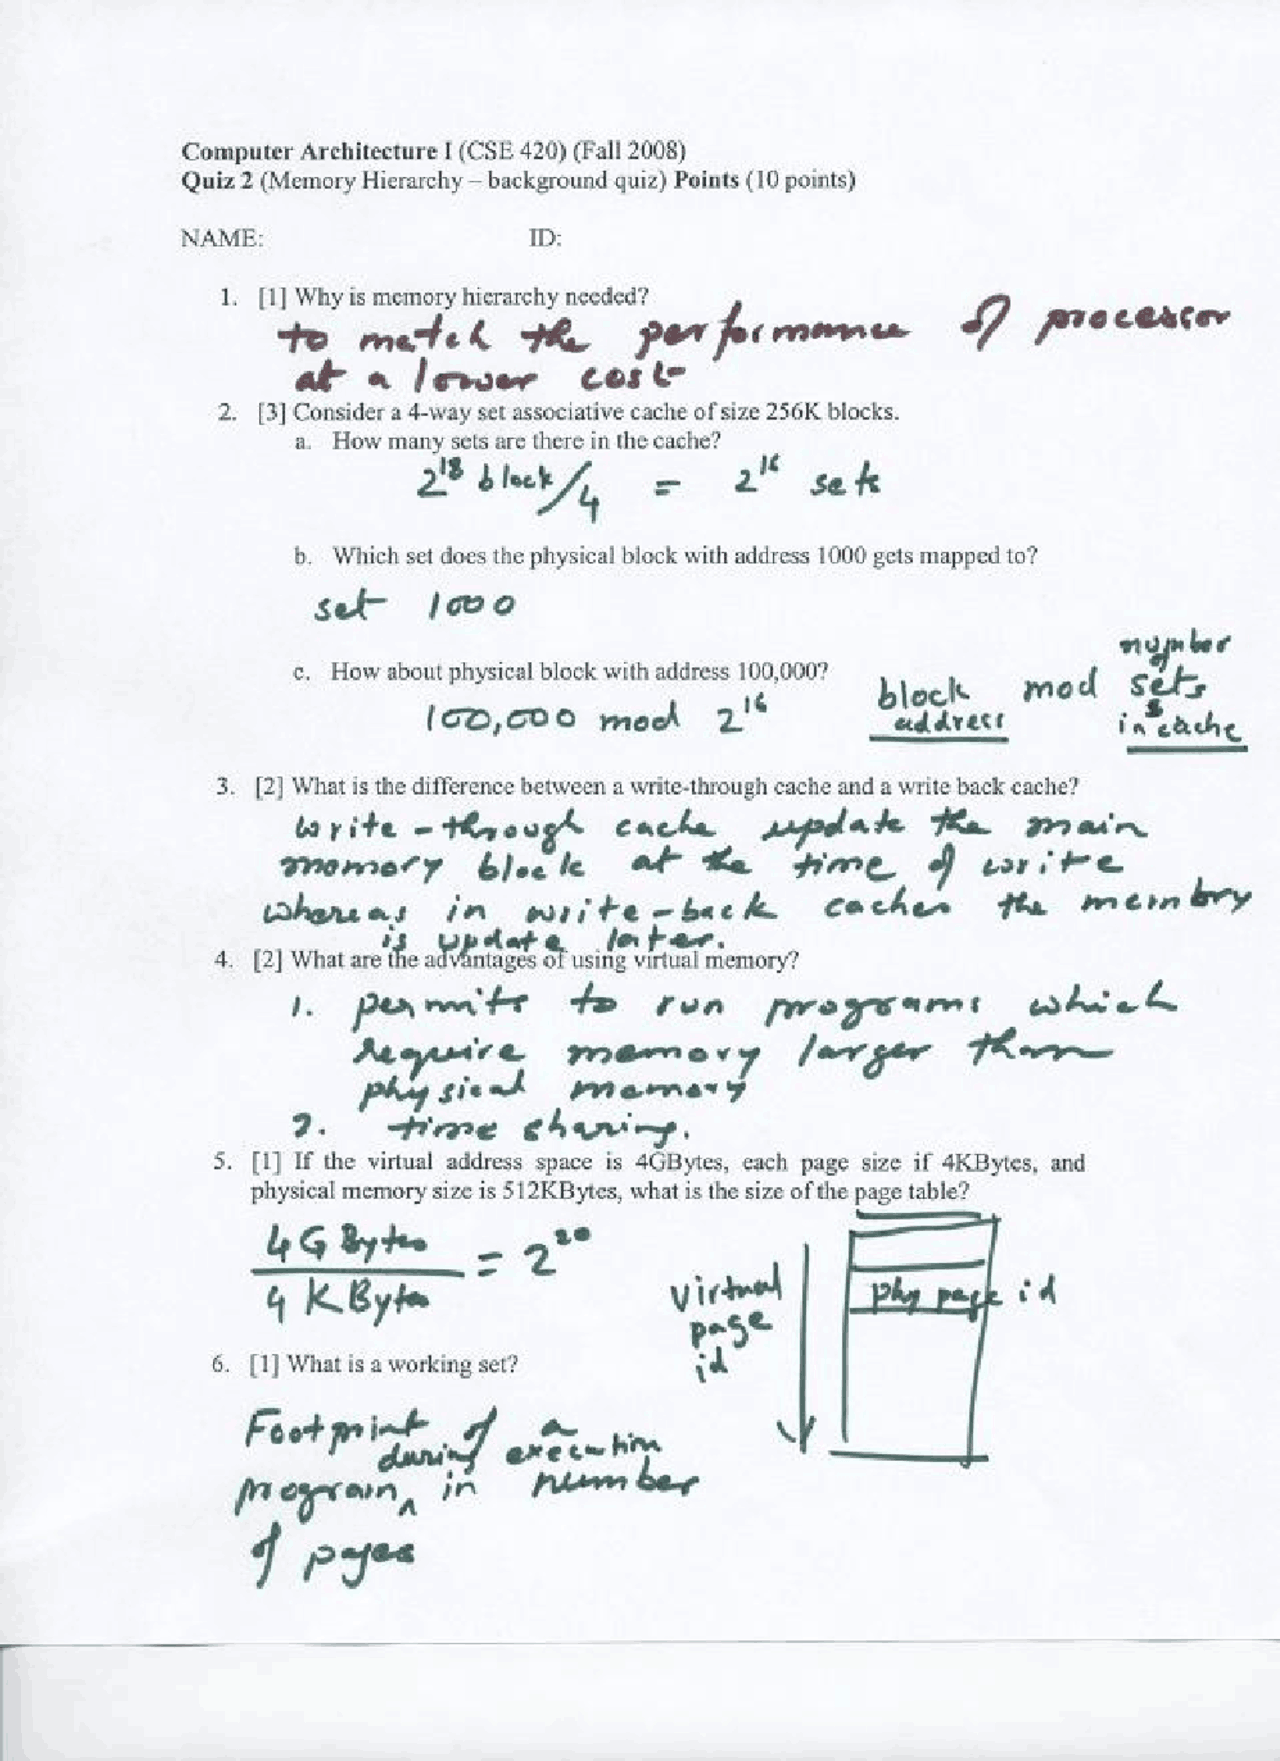 Computer Architecture I (CSE 420) (Fall 2008)
Quiz 2 (Memory Hierarchy – background quiz) Points (10 points)
NAME: ID:
1. [1] Why is memory hierarchy needed?
to match the performance of processor
at a lower cost
2. [3] Consider a 4-way set associative cache of size 256K blocks.
a. How many sets are there in the cache?
2^18 block/4 = 2^16 sets
b. Which set does the physical block with address 1000 gets mapped to?
set 1000
c. How about physical block with address 100,000?
100,000 mod 2^16
block address mod number of sets in cache
3. [2] What is the difference between a write-through cache and a write back cache?
write-through cache update the main
memory block at the time of write
whereas in write-back caches the memory
is update later.
4. [2] What are the advantages of using virtual memory?
1. permits to run programs which
require memory larger than
physical memory
2. time sharing.
5. [1] If the virtual address space is 4GBytes, each page size if 4KBytes, and
physical memory size is 512KBytes, what is the size of the page table?
4 G Bytes
4 K Bytes
= 2^20
virtual
page
id
phy page id
6. [1] What is a working set?
Footprint of a
during execution
program ^ in number
of pages